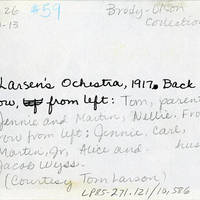 26 #59 Brody-Olson
-13 Collection
Larsen's Ochestra, 1917. Back
ow, from left: Tom, parent
Jennie and Martin, Nellie. Fro
row from left; Jennie, Carl,
Martin, Jr, Alice and hus
Jacob Wyss.
(Courtesy Tom Larson)
LP85-271.121/10,586